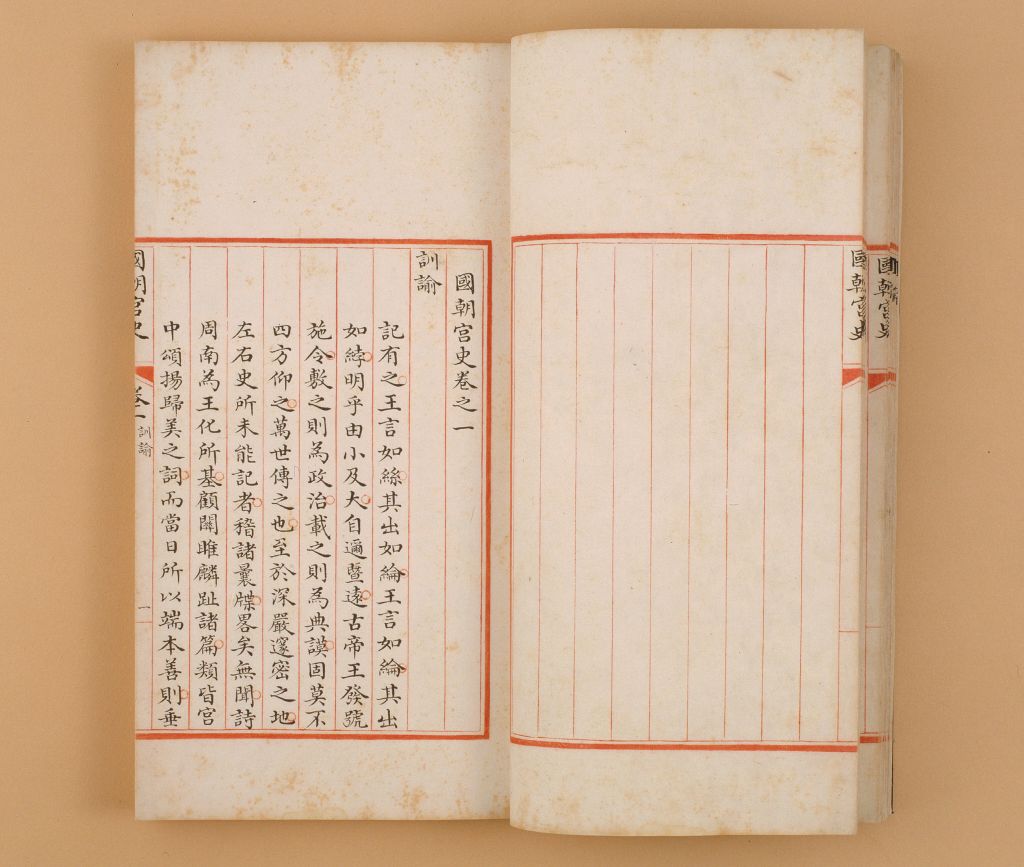 國朝宮史
國朝宮史
國朝宮史卷之一
訓諭
記有之王言如絲其出如綸王言如綸其出
如綍明乎由小及大自邇暨遠古帝王發號
施令敷之則為政治載之則為典謨固莫不
四方仰之萬世傳之也至於深嚴邃密之地
左右史所未能記者稽諸曩牒畧矣無聞詩
周南為王化所基顧關雎麟趾諸篇類皆宮
中頌揚歸美之詞而當日所以端本善則垂
國朝宮史
卷一
訓諭
一